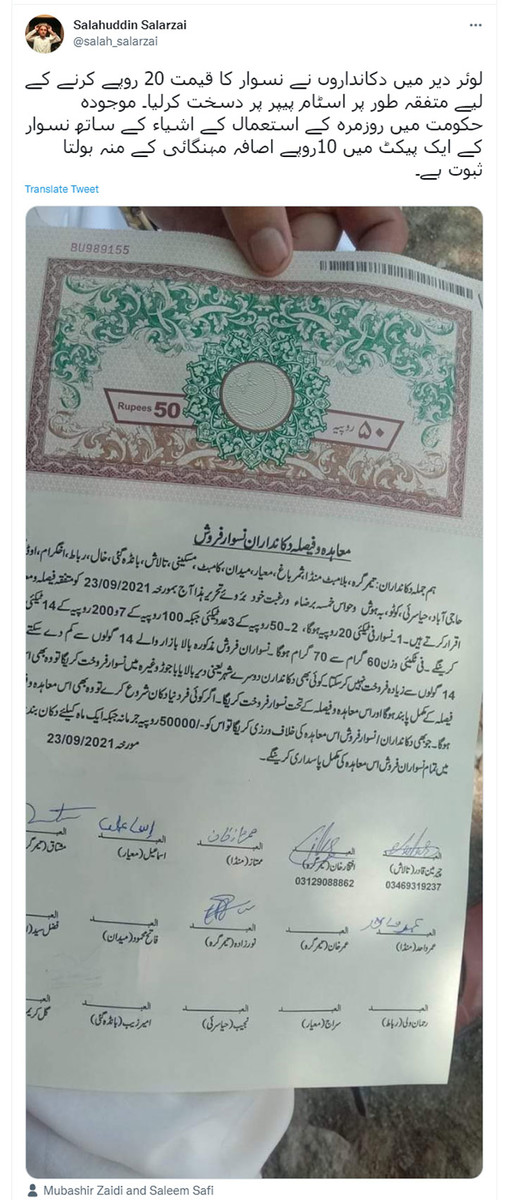 Salahuddin Salarzai
@salah_salarzai
لوئر دیر میں دکانداروں نے نسوار کا قیمت 20 روپے کرنے کے
لیے متفقہ طور پر اسٹام پیپر پر دسخت کرلیا۔ موجودہ
حکومت میں روزمرہ کے استعمال کے اشیاء کے ساتھ نسوار
کے ایک پیکٹ میں 10روپے اضافہ مہنگائی کے منہ بولتا
ثبوت ہے۔
Translate Tweet
BU989155
Rupees 50
۵۰ روپیہ
معاہدہ و فیصلہ دکانداران نسوار فروش
ہم جملہ دکانداران: تیمرگرہ، بلامبٹ، منڈا، ثمرباغ، معیار، میدان، کامبٹ، مسکینی، تالاش، بانڈہ گئی، خال، رباط،
حاجی آباد، حیاسرئی، کوٹو، بہ ہوش و حواس خمسہ برضاء و رغبت خود بروئے تحریر ہذا آج بمورخہ 23/09/2021 کو متفقہ فیصلہ
اقرار کرتے ہیں۔ 1۔ نسوار فی ٹکیئی 20 روپیہ ہوگا، 2۔ 50 روپے کے 3 عدد ٹکیئی جبکہ 100 روپے کے 7 و 200 روپے کے 14 ٹکیئی
کرینگے۔ فی ٹکیئی وزن 60 گرام سے 70 گرام ہوگا۔ نسواران فروش مذکورہ بالا بازار والے 14 گولوں سے کم دے سکتے
14 گولوں سے زیادہ فروخت نہیں کرسکتا۔ کوئی بھی دکانداران دوسرے شہر یعنی دیر بالا یا باجوڑ وغیرہ میں نسوار فروخت کریگا تو وہ بھی
فیصلہ کے مکمل پابند ہوگا اور اس معاہدہ و فیصلہ کے تحت نسوار فروخت کریگا۔ اگر کوئی فرد نیا دکان شروع کرے تو وہ بھی اس معاہدہ و
ہوگا۔ جو بھی دکانداران نسوار فروش اس معاہدہ کی خلاف ورزی کریگا تو اس کو -/50000 روپیہ جرمانہ جبکہ ایک ماہ کیلئے دکان بند
میں تمام نسواران فروش اس معاہدہ کی مکمل پاسداری کرینگے۔
مورخہ 23/09/2021
العبد العبد العبد العبد العبد
چیرمین قادر (تالاش) افتخار خان (تیمرگرہ) ممتاز (منڈا) اسماعیل (معیار) مشتاق
03469319237 03129088862
العبد العبد العبد العبد
عمر واحد (منڈا) عمر خان (تیمرگرہ) نورزادہ (تیمرگرہ) فاتح محمود (میدان) فضل سید
العبد العبد العبد العبد العبد
رحمان ولی (رباط) سراج (معیار) نجیب (حیاسرئی) امیر زیب (بانڈہ گئی) گل کریم
Mubashir Zaidi and Saleem Safi